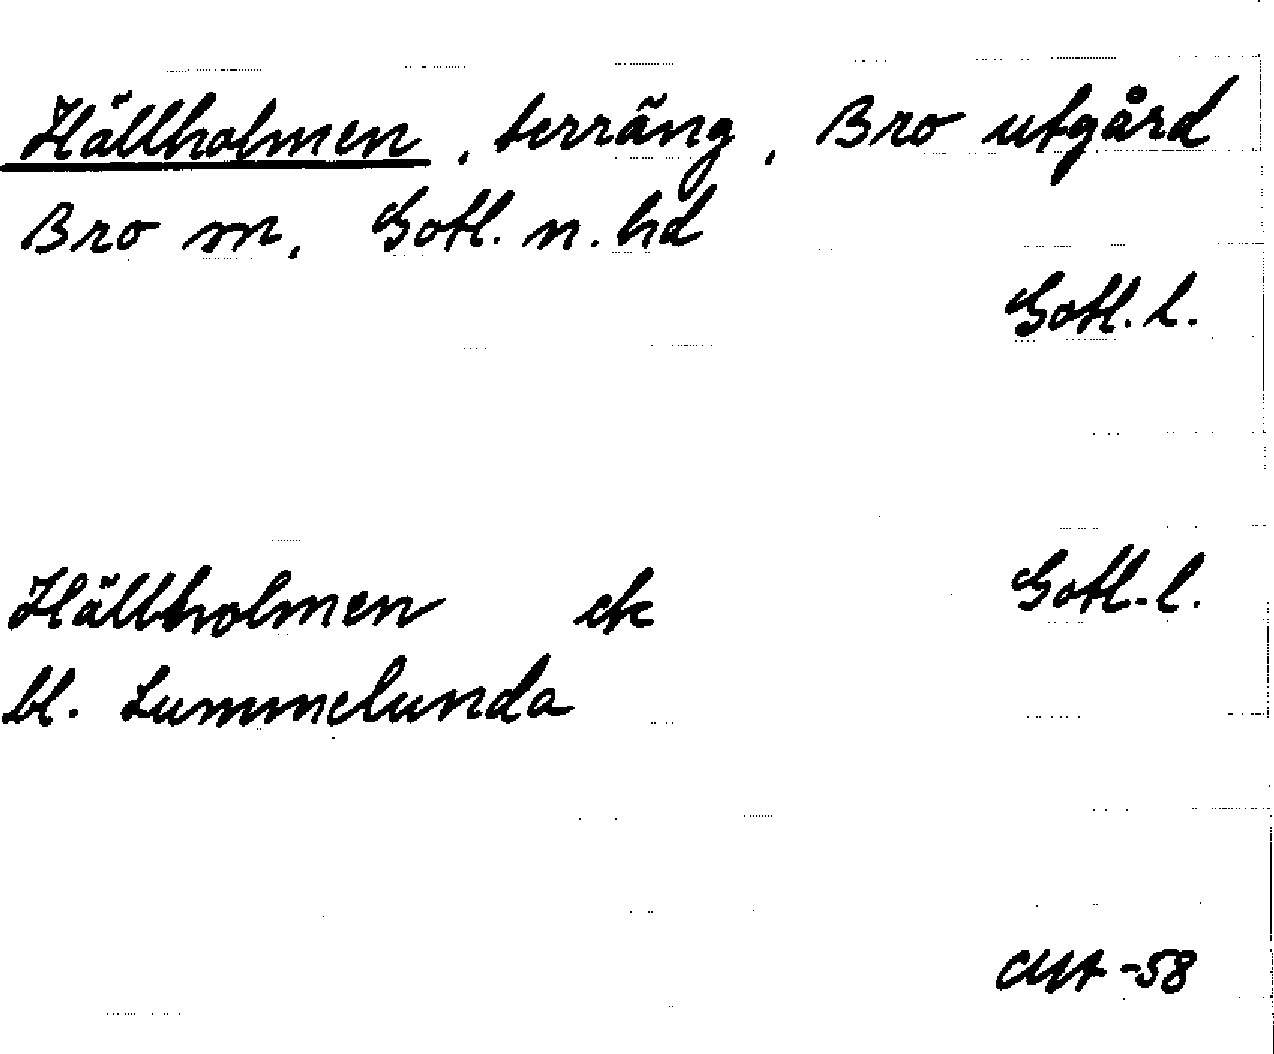 Hällholmen, terräng, Bro utgård
Bro sn, Gotl. n. hd
Gotl. l.
Hällholmen ek Gotl. l.
bl. Lummelunda
-58